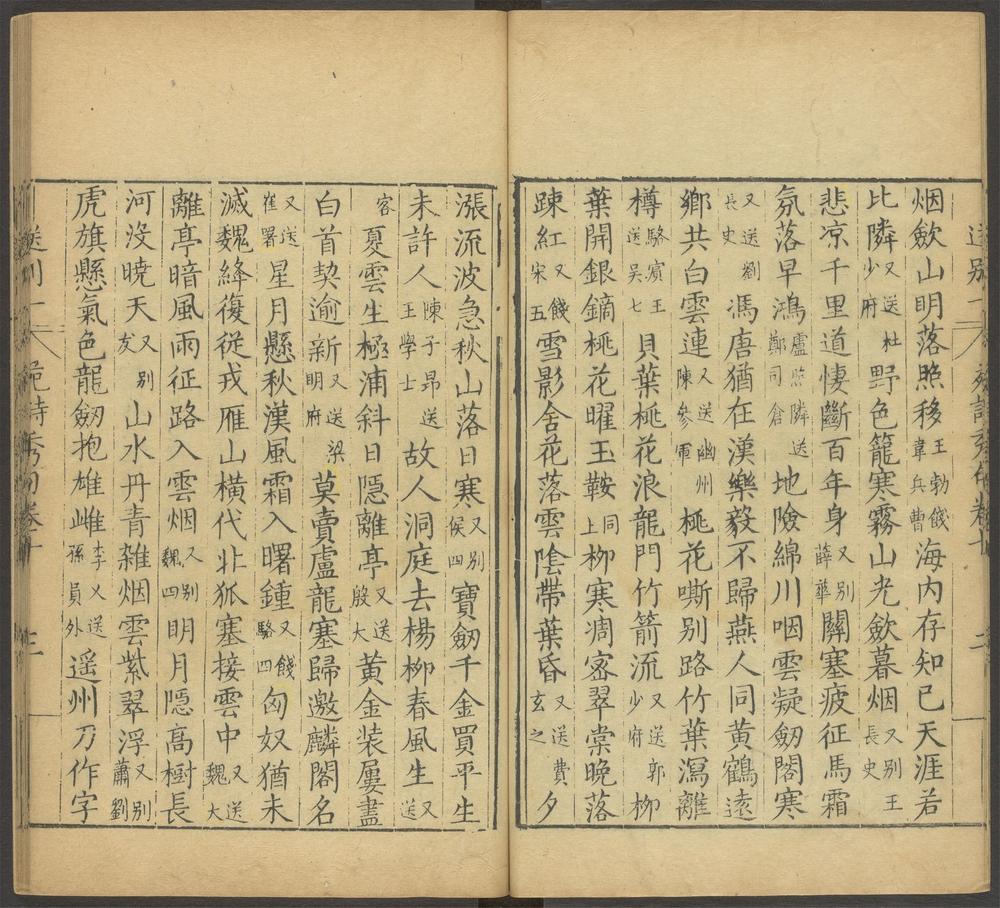 烟斂山明落照移王勃餞韋兵曹海内存知已天涯若
比隣又送杜少府野色籠寒霧山光斂暮烟又别王長史
悲凉千里道悽斷百年身又别薛華關塞疲征馬霜
氛落早鴻盧照隣送鄭司倉地險綿川咽雲凝劒閣寒
又送劉長史馮唐猶在漢樂毅不歸燕人同黄鶴遠
鄉共白雲連又送幽州陳參軍桃花嘶别路竹葉瀉離
樽駱賓王送吳七貝葉桃花浪龍門竹箭流又送郭少府柳
葉開銀鏑桃花曜玉鞍同上柳寒凋宻翠棠晚落
踈紅又餞宋五雪影含花落雲陰帶葉昏又送費玄之夕
漲流波急秋山落日寒又别侯四寶劒千金買平生
未許人陳子昂送王學士故人洞庭去楊柳春風生又送
客夏雲生極浦斜日隱離亭又送殷大黄金装屢盡
白首契逾新又送梁明府莫賣盧龍塞歸邀麟閣名
又送崔署星月懸秋漢風霜入曙鍾又餞駱四匈奴猶未
滅魏絳復從戎雁山橫代北狐塞接雲中又送魏大
離亭暗風雨征路入雲烟又别魏四明月隱髙樹長
河没曉天又别友山水丹青雜烟雲紫翠浮又别蕭劉
虎旗懸氣色龍劒抱雄雌李乂送孫員外遥州刀作字